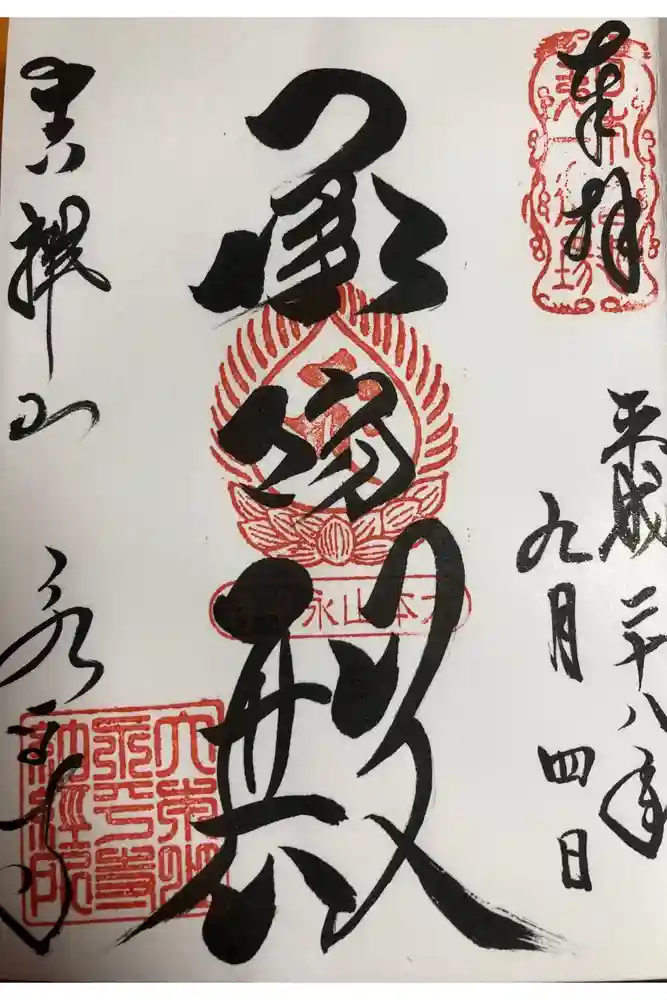 奉拝
平成二十八年
九月四日
承陽殿
大本山永平寺
吉祥山 永平寺
大本山
永平寺